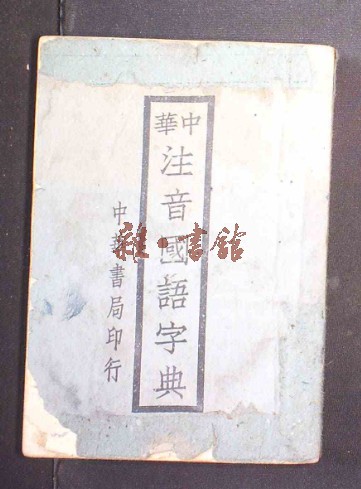 中華
注音國語字典
中華書局印行
雜·書館